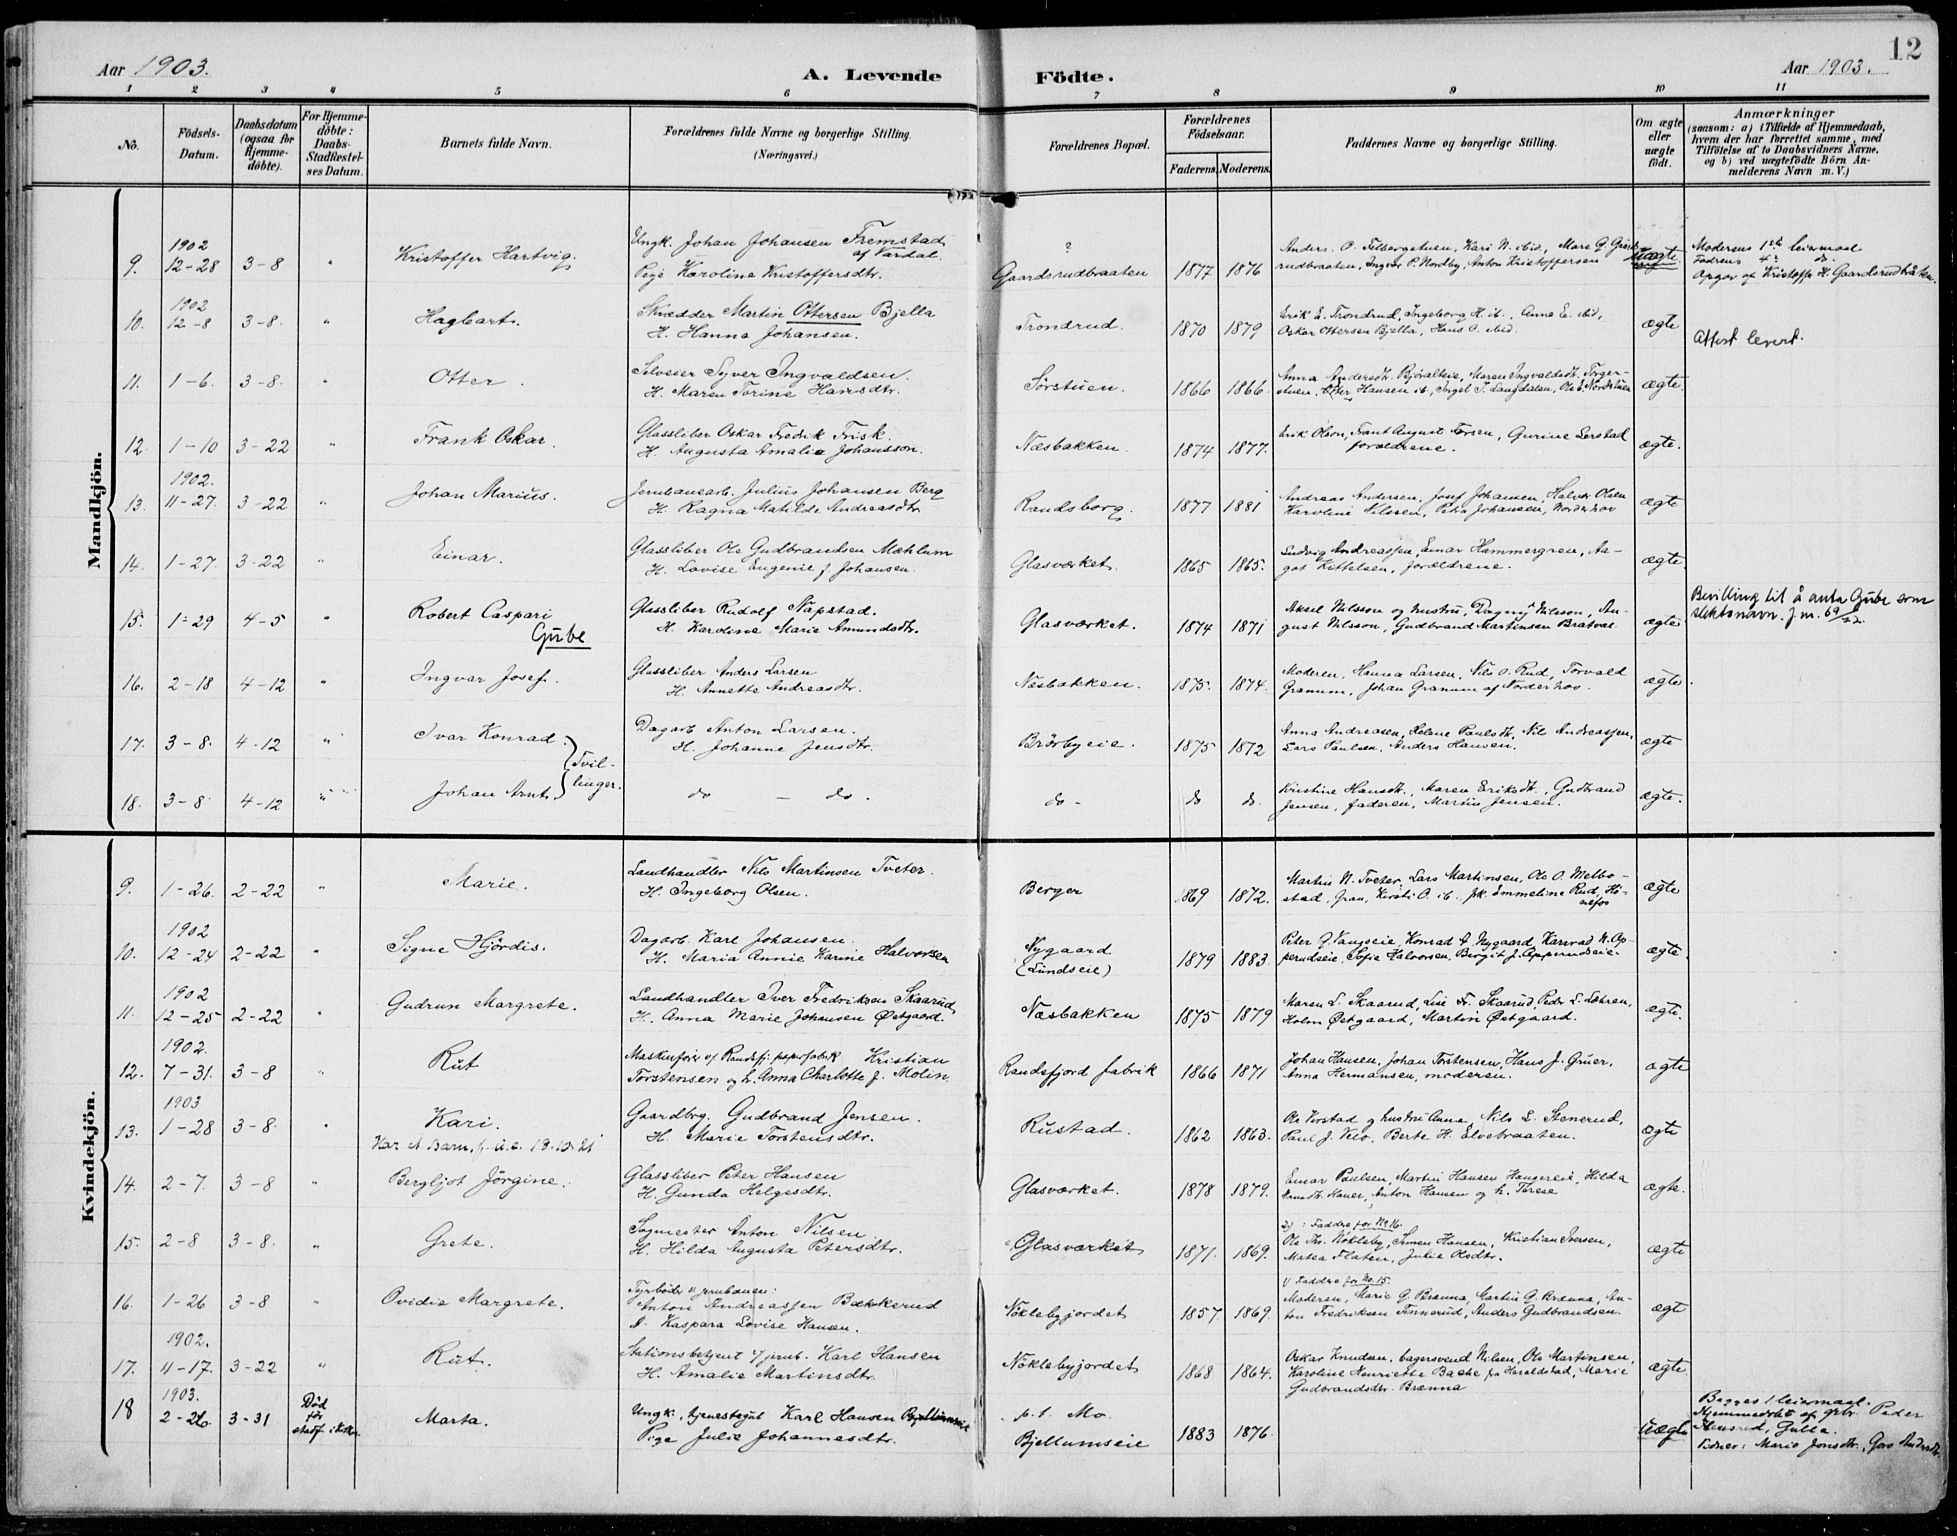 12
Aar 1903.
A. Levende
Födte.
Aar 1903.
1 2 3 4 5 6 7 8 9 10 11
No.
Födsels-
Datum.
Daabsdatum
(ogsaa for
Hjemme-
döbte).
For Hjemme-
döbte:
Daabs-
Stadfæstel-
ses Datum.
Barnets fulde Navn.
Forældrenes fulde Navne og borgerlige Stilling.
(Næringsvei.)
Forældrenes Bopæl.
Forældrenes
Födselsaar.
Faderens. Moderens.
Faddernes Navne og borgerlige Stilling.
Om ægte
eller
uægte
födt.
Anmærkninger
(saasom: a) i Tilfælde af Hjemmedaab,
hvem der har forrettet samme, med
Tilföielse af to Daabsvidners Navne,
og b) ved uægtefödte Börn An-
melderens Navn m. V.)
Mandkjön.
9. 1902 12-28 3-8 " Kristoffer Hartvig.
Ungk. Johan Johansen Fremstad
af Vardal.
Pige Karoline Kristoffersdtr.
?
Gaardsrudbraaten 1877 1876
Anders O. Filbergstuen, Kari N. ibid, Mare G.
rudbraaten, Ingvar P. Nordby, Anton Kristoffersen
uægte
Moderens 1ste leiermaal
Fadrens 4de do.
Opgav af Kristoffer H. Gaardsrudbråten.
10. 1902 12-8 3-8. " Hagbart.
Skrædder Martin Ottersen Bjella
H. Hanna Johansen.
Trondrud. 1870 1879
Erik E. Trondrud, Ingeborg H. ib., Anne E. ibid,
Oskar Ottersen Bjella, Hans O. ibid.
ægte
Attest levert.
11. 1-6. 3-8. " Otter.
Selveier Syver Ingvaldsen.
H. Maren Torine Hansdtr.
Sørstuen. 1866 1866.
Anna Andersdtr. Maren Ingvaldsdtr.
stuen, Otter Hansen ib, Ole E. Nordstuen
ægte.
12. 1-10 3-22 " Frank Oskar.
Glassliber Oskar Fredik Frisk.
H. Augusta Amalia Johansson.
Næsbakken. 1874 1877.
Erik Olson, August Gurine Lerstad
forældrene.
ægte.
13. 1902. 11-27. 3-22 " Johan Marius.
Jernbanearb. Julius Johansen Berg
H. Ragna Matilde Andreasdtr.
Randsborg. 1877 1881
Andreas Andersen, Josef Johansen, Halvor Olsen
Karoline Nilssen, Petra Johansen, Norderhov
ægte
14. 1-27. 3-22 " Einar.
Glassliber Ole Gudbrandsen Mæhlum
H. Lovise Eugenie f. Johansen.
Glasværket. 1865 1865.
Ludvig Andreassen, Einar Hammergren, Aa-
got Kittelsen, forældrene.
ægte.
15. 1-29 4-5 " Robert Caspari
Gube
Glassliber Rudolf Napstad.
H. Karoline Marie Amundsdtr.
Glasværket. 1874 1871
Aksel Nilsson og hustru, Dagny Nilsson, Au-
gust Nilsson, Gudbrand Martinsen Bratval
ægte
Bevilling til å anta Gube som
slektsnavn. J.n. 69/22.
16. 2-18 4-12 " Ingvar Josef.
Glassliber Anders Larsen
H. Annette Andreasdtr.
Næsbakken. 1875. 1874.
Moderen, Hanna Larsen, Nils O. Rud, Torvald
Granum, Johan Granum af Norderhov.
ægte.
17. 3-8. 4-12 " Ivar Konrad.
Dagarb. Anton Larsen.
H. Johanne Jensdtr.
Brörbyeie. 1875 1872
Anna Andreasen, Helene Paulsdtr, Nil Andreassen,
Lars Paulsen, Anders Hansen.
ægte
Tvil-
linger.
18. 3-8 4-12 " Johan Arnt.
do - do.
do - do do.
Kristine Hansdtr., Maren Eriksdtr., Gudbrand
Jensen, faderen, Martin Jensen.
ægte.
Kvindekjön.
9. 1-26. 2-22 " Marie.
Landhandler Nils Martinsen Tveter.
H. Ingeborg Olsen.
Berger 1869 1872.
Martin N. Tveter, Lars Martinsen, Ole O. Melbo-
stad, Gran, Kirsti O. ib., pk. Emmeline Rud, Hö-
nefos
ægte
10. 1902 12-24 2-22 " Signe Hjördis.
Dagarb. Karl Johansen.
H. Maria Annie Karine Halvorsen
Nygaard
(Lundseie) 1879 1883.
Peter G. Vangseie, Konrad A. Nygaard, Konrad N. Op-
perudseie, Sofie Halvorsen, Birgit J. Opperudseie.
ægte.
11. 1902 12-25 2-22 " Gudrun Margrete.
Landhandler Iver Fredriksen Skaarud
H. Anna Marie Johansen Østgaard.
Næsbakken 1875 1879
Maren L. Skaarud, Lise Fr. Skaarud, Peder L. Löhren,
Holm Østgaard, Martin Østgaard.
ægte.
12. 1902. 7-31. 3-8 " Rut
Maskinfører v/ Randsfj. papirfabrik Kristian
Torstensen og h. Anna Charlotte f. Molin.
Randsfjord fabrik 1866 1871
Johan Hansen, Johan Torstensen, Hans J. Gruer,
Anna Hermansen, moderen.
ægte
13. 1903 1-28 3-8. " Kari.
Gaardbrg. Gudbrand Jensen.
H. Marie Torstensdtr.
Rustad. 1862 1863.
Ole Verstad og hustru Anna, Nils L. Stenerud,
Paul J. Velo, Berte H. Elvebraaten.
ægte
14. 2-7. 3-8 " Bergljot Jörgine.
Glassliber Peter Hansen
H. Gunda Helgesdtr.
Glasværket. 1878 1879.
Einar Paulsen, Martin Hansen Haugereie, Hilda
Anton Hansen og h. Terese
ægte.
15. 2-8 3-8. " Grete.
Sagmester Anton Nilsen
H. Hilda Augusta Petersdtr.
Glasværket 1871. 1869.
2) : Faddre for No 16.
Ole Th. Nökleby, Simen Hansen, Kristian Iversen,
Matea Flaten, Julie Olsdtr.
ægte
16. 1-26 3-8 " Ovidie Margrete.
Fyrbøder v/ jernbanen:
Anton Andreassen Bækkerud
H. Kaspara Lovise Hansen.
Nöklebyjordet 1857. 1869.
1) Faddre for No. 15.
Moderen, Marie G. Brænna, Martin G. Brænna, An-
ton Fredriksen Finnerud, Anders Gudbrandsen.
ægt
17. 1902. 11-17. 3-22 " Rut.
Stationsbetjent v/ jernb. Karl Hansen
H. Amalie Martinsdtr.
Nöklebyjordet 1868 1864.
Oskar Knudsen, bagersvend Nilsen, Ole Martinsen,
Karoline Henriette Bache fra Haraldstad, Marie
Gudbrandsdtr. Brænna
ægte.
18 1903. 2-26. 3-31
Död
før
stadf. i kirken
Marta.
Ungk., tjenestegut Karl Hansen Bjellumseie
Pige Julie Johannesdtr.
p.t. Mo.
Bjellumseie 1883 1876
uægte
Begges 1. leiermaal.
Hjemmedøbt af grbr. Peder
Gulla.
Vidner: Marie Jonsdtr., Goro Andersdtr.